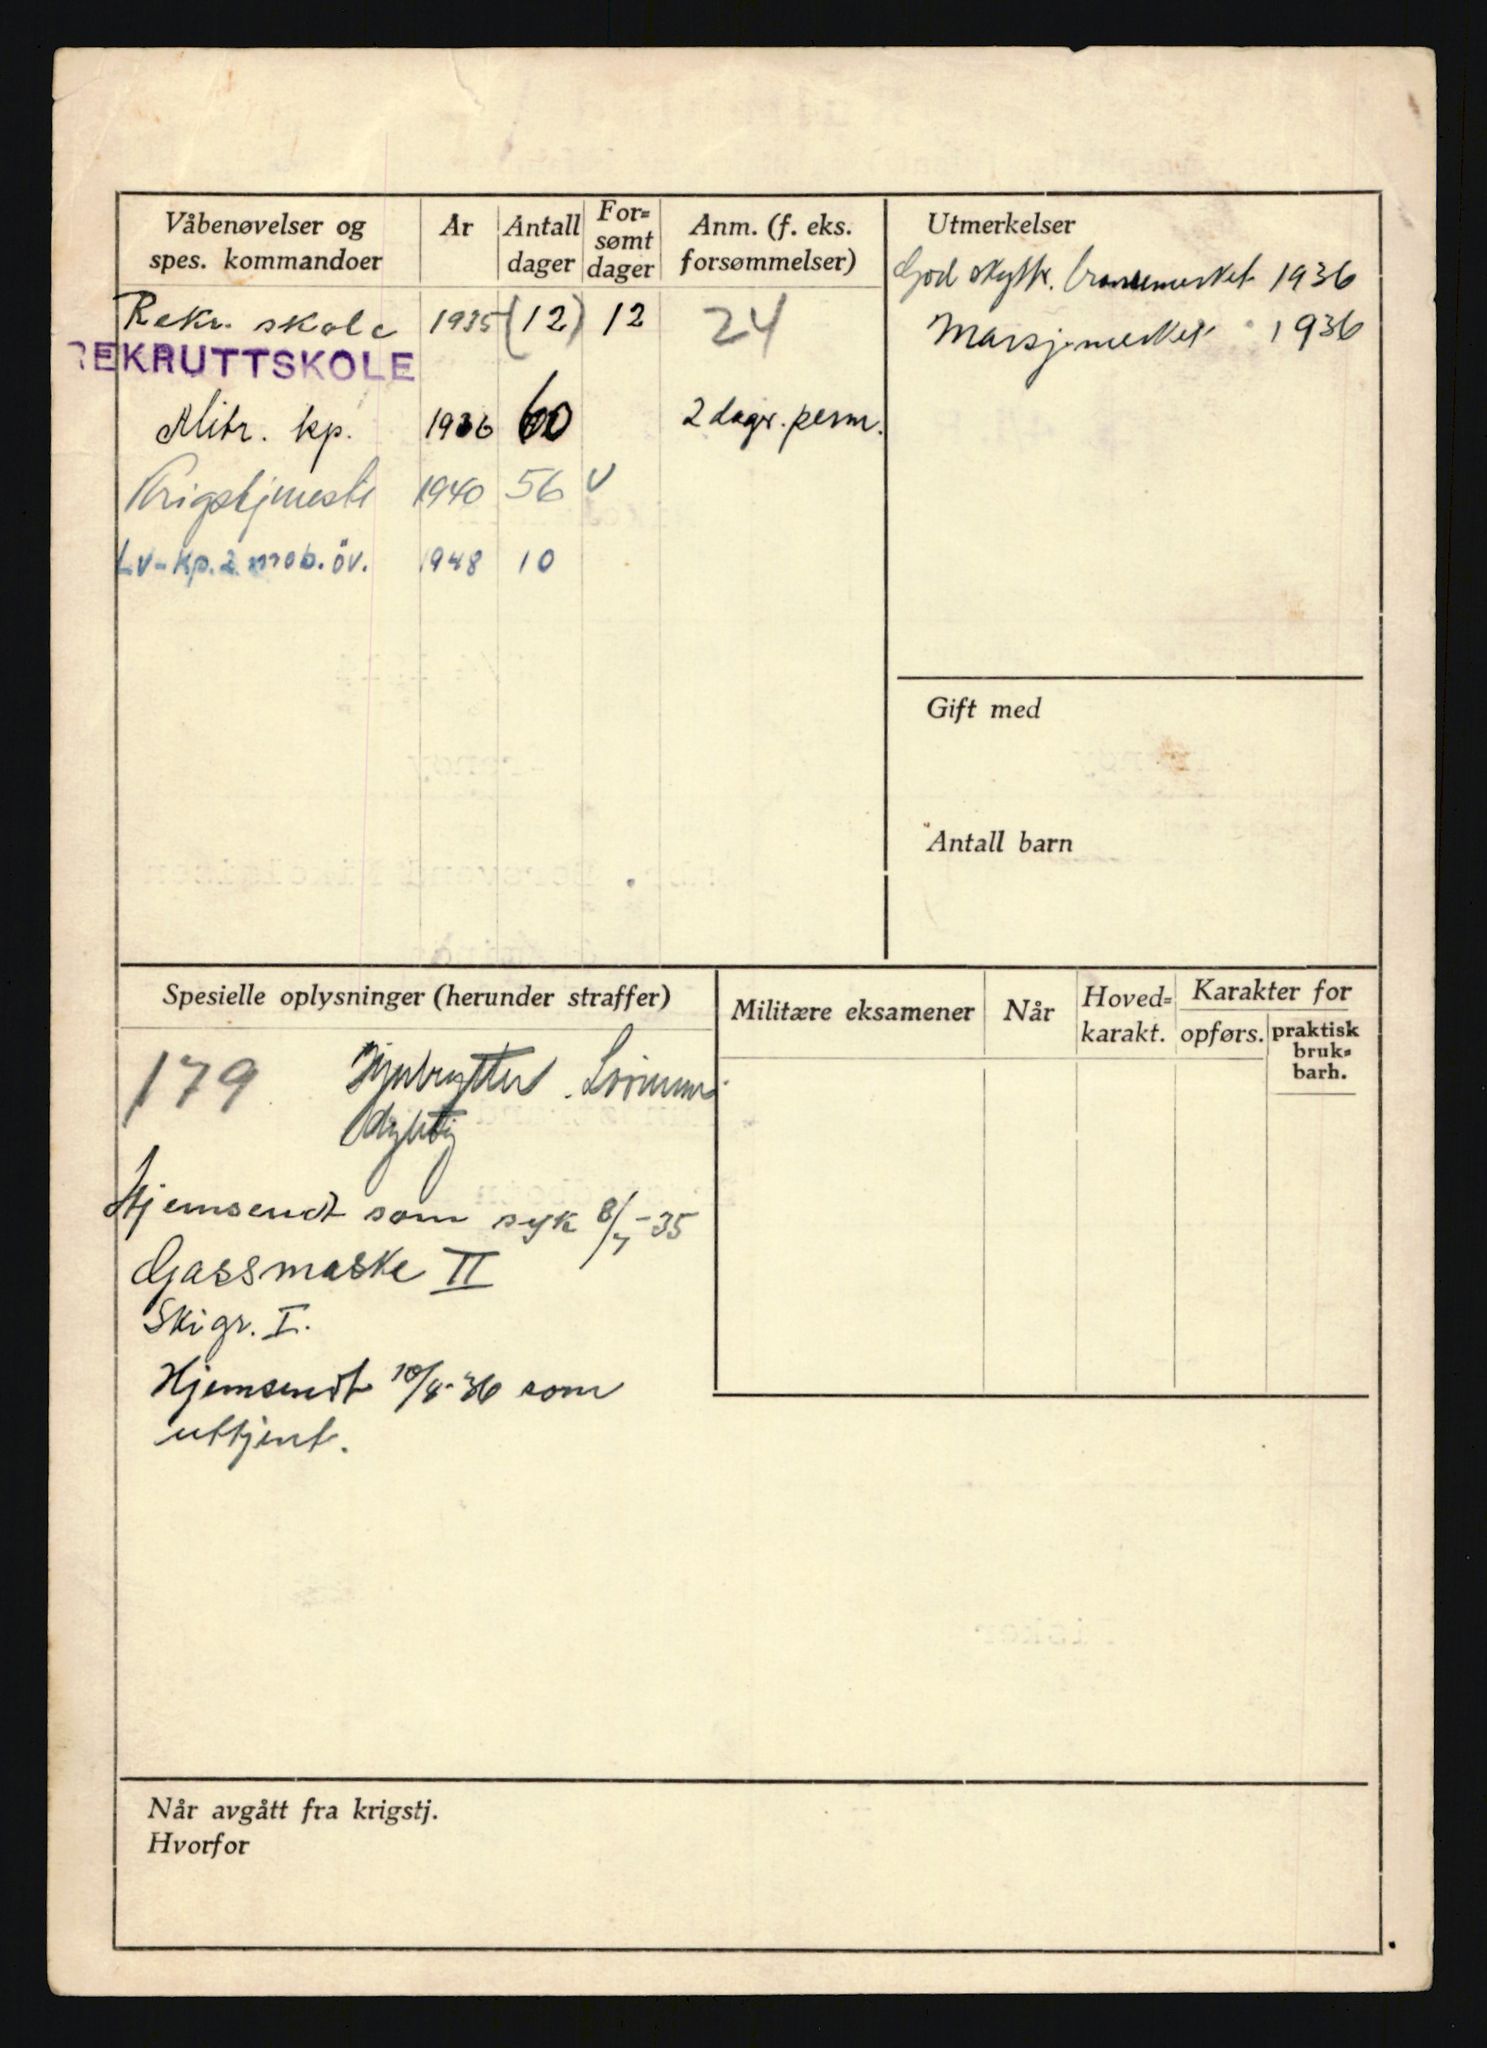 Våbenøvelser og
spes. kommandoer
År
Antall
dager
For=
sømt
dager
Anm. (f. eks.
forsømmelser)
Rekr. skole 1935 (12) 12 24
REKRUTTSKOLE
Mitr. kp. 1936 60 2 dagr. perm.
Krigstjeneste 1940 56 v
Lv-kp. 2 mob. öv. 1948 10
Utmerkelser
God skytt. bronsemerket 1936
Marsjmerket 1936
Gift med
Antall barn
Spesielle oplysninger (herunder straffer)
179
Svømme-
dyktig
Hjemsendt som syk 8/7-35
Gassmaske II
Skigr. I.
Hjemsendt 10/8-36 som
uttjent.
Militære eksamener
Når
Hoved=
karakt.
Karakter for
opførs.
praktisk
bruk=
barh.
Når avgått fra krigstj.
Hvorfor